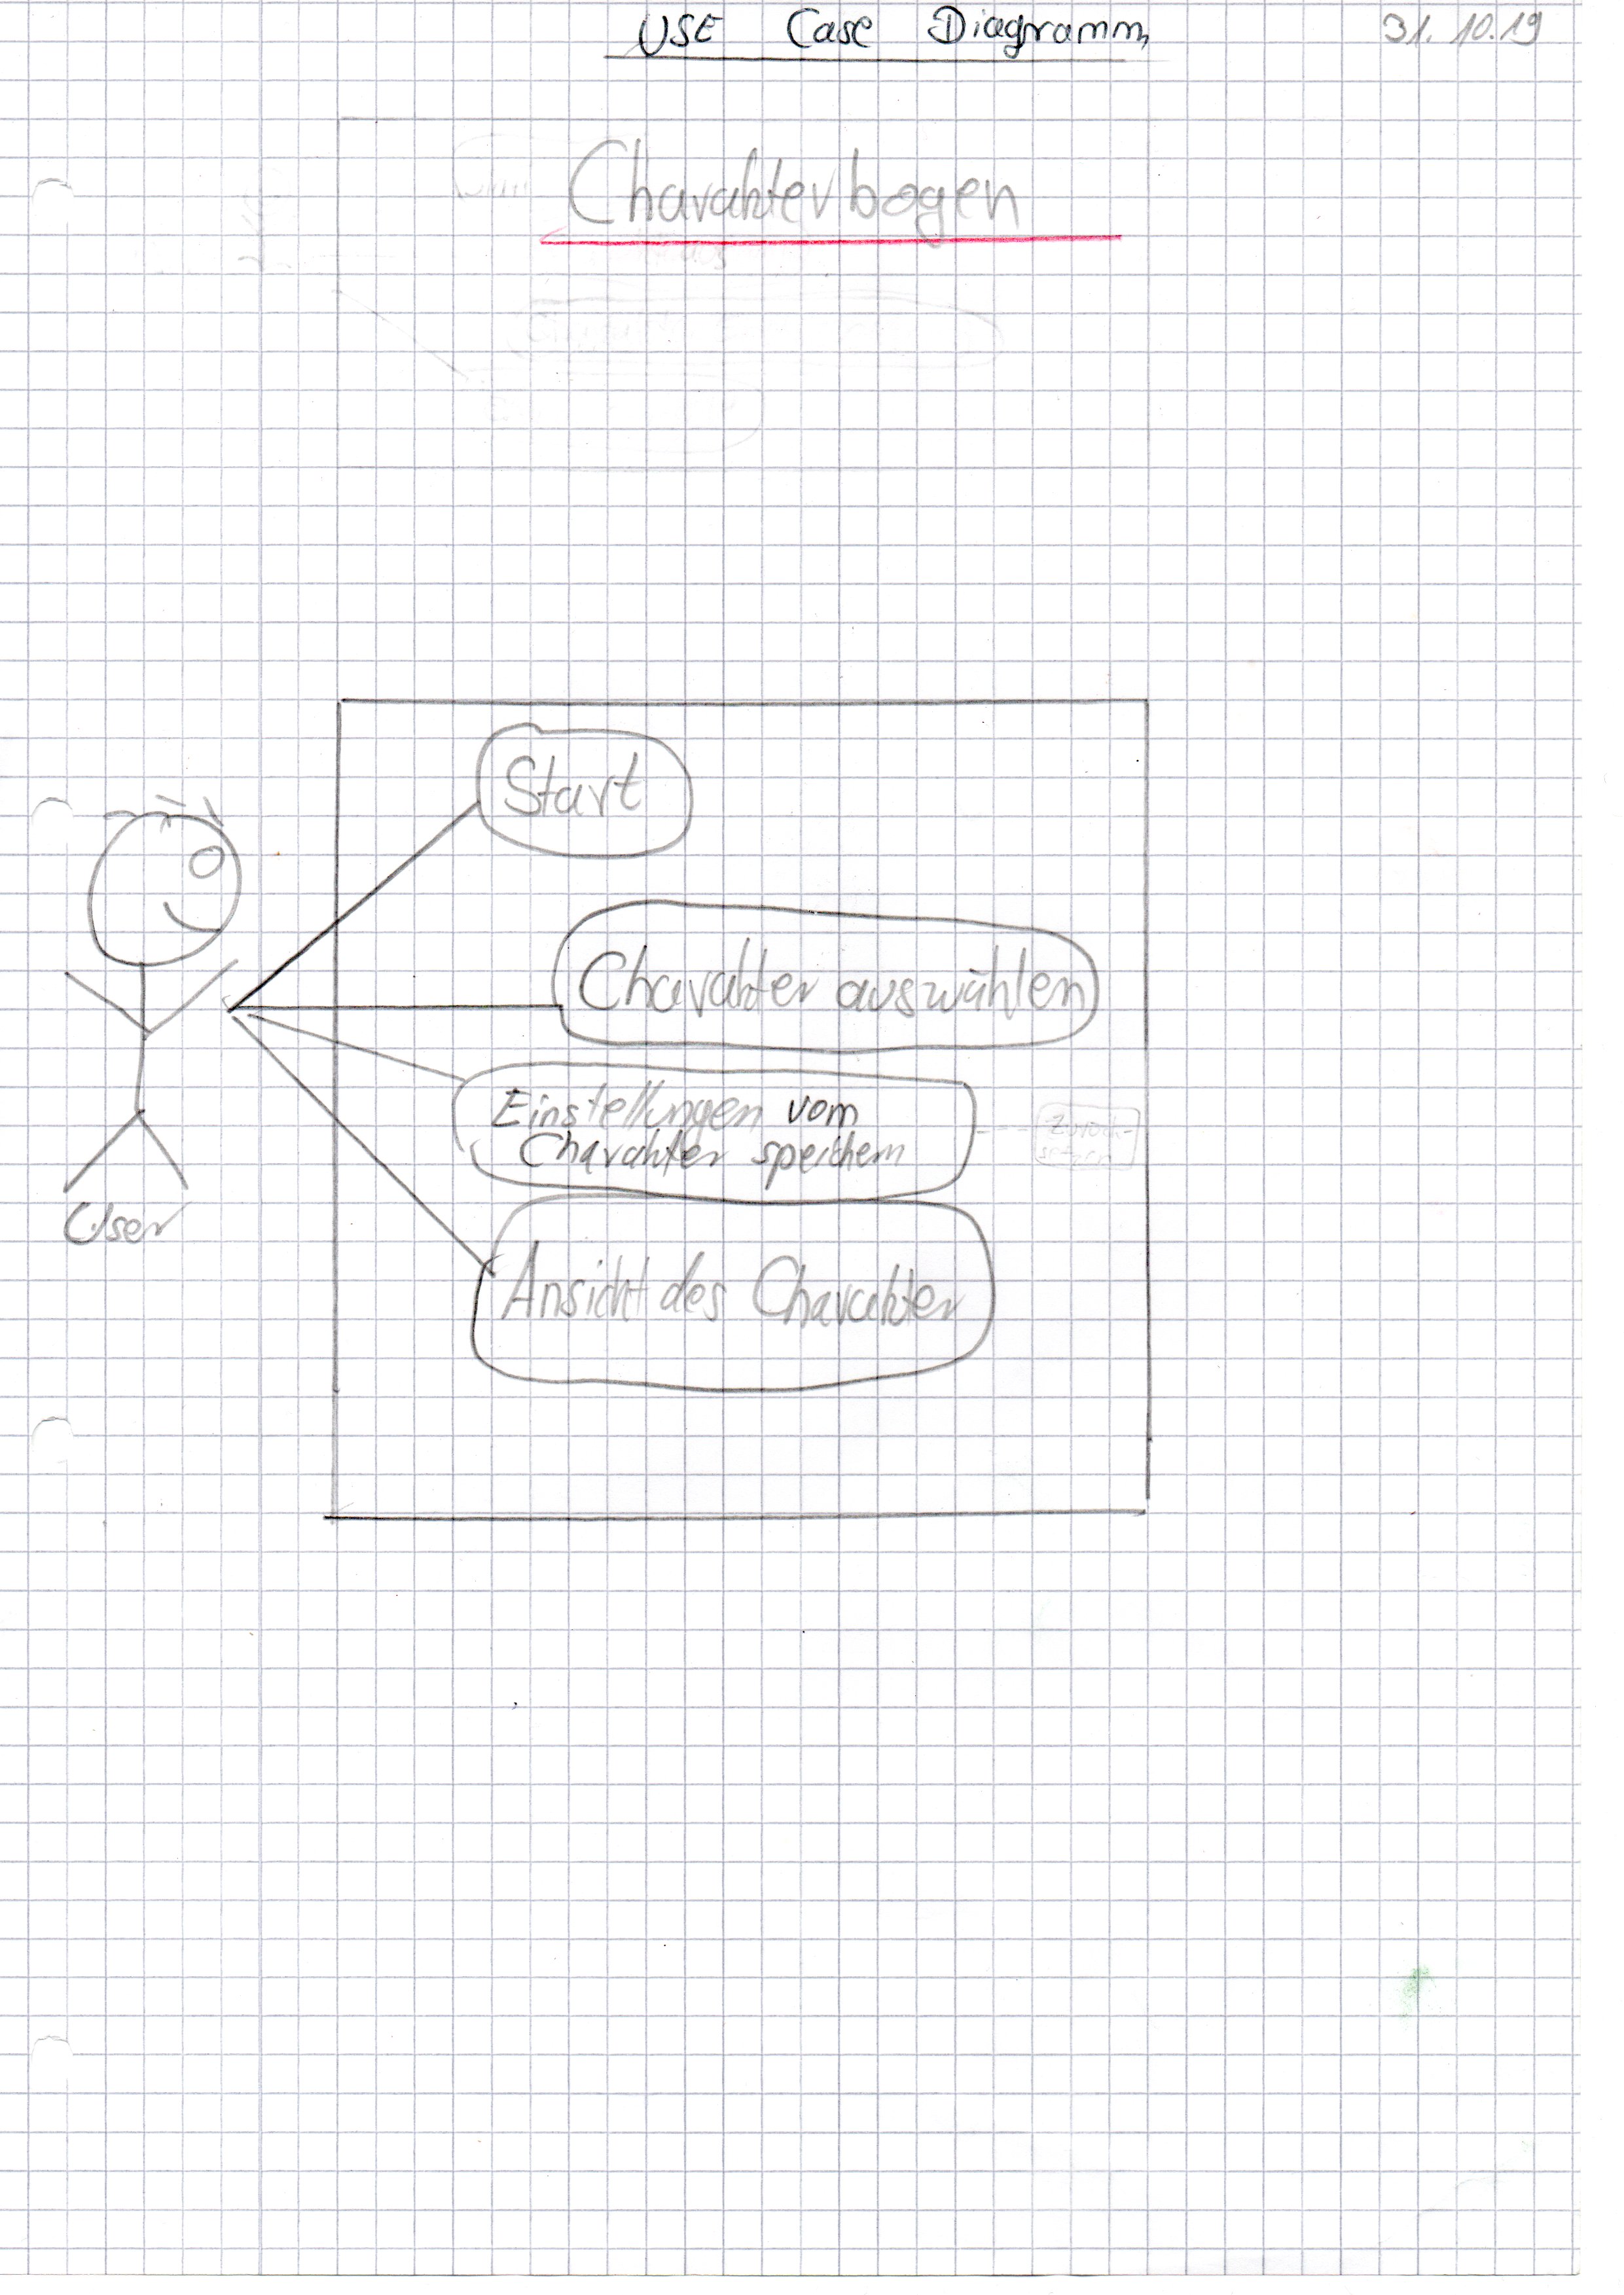 USE Case Diagramm 31.10.19
Charakterbogen
Start
Charakter auswählen
Einstellungen vom
Charakter speichern
Zurück-
setzen
Ansicht des Charakter
User